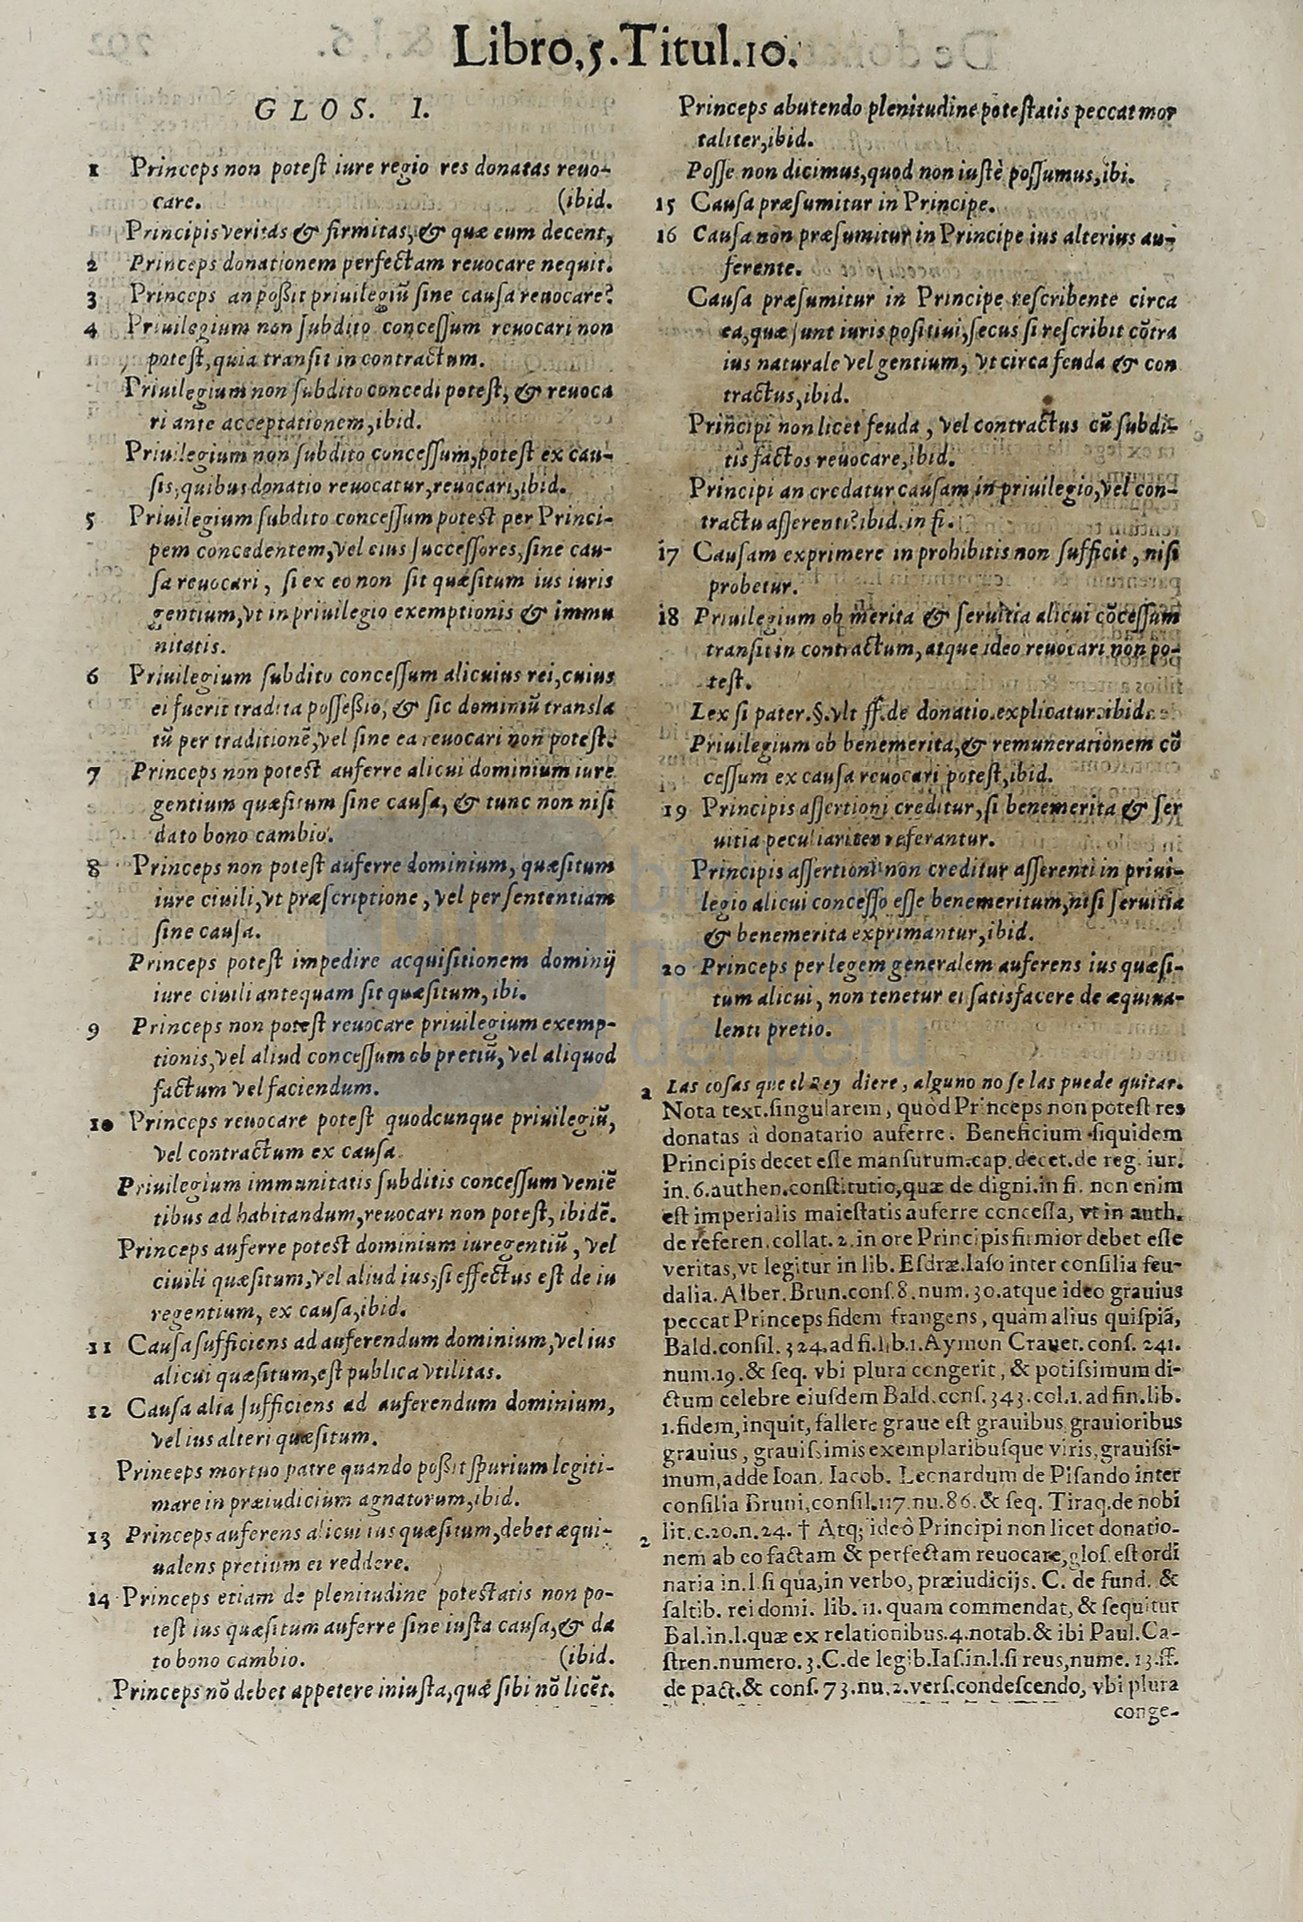 Libro,5.Titul.10.
GLOS. 1.
1 Princeps non potest iure regio res donatas reuo-
care. (ibid.
Principis veritas & firmitas, & quæ eum decent,
2 Princeps donationem perfectam reuocare nequit.
3 Princeps an poßit priuilegiũ sine causa reuocare?
4 Priuilegium non subdito concessum reuocari non
potest, quia transit in contractum.
Priuilegium non subdito concedi potest, & reuoca
ri ante acceptationem, ibid.
Priuilegium non subdito concessum, potest ex cau-
sis, quibus donatio reuocatur, reuocari, ibid.
5 Priuilegium subdito concessum potest per Princi-
pem concedentem, vel eius successores, sine cau-
sa reuocari, si ex eo non sit quæsitum ius iuris
gentium, vt in priuilegio exemptionis & immu
nitatis.
6 Priuilegium subdito concessum alicuius rei, cuius
ei fuerit tradita possesio, & sic dominiũ transla
tũ per traditionẽ, vel sine ea reuocari non potest.
7 Princeps non potest auferre alicui dominium iure
gentium quæsitum sine causa, & tunc non nisi
dato bono cambio.
8 Princeps non potest auferre dominium, quæsitum
iure ciuili, vt præscriptione, vel per sententiam
sine causa.
Princeps potest impedire acquisitionem dominij
iure ciuili antequam sit quæsitum, ibi.
9 Princeps non potest reuocare priuilegium exemp-
tionis, vel aliud concessum ob pretiũ, vel aliquod
factum vel faciendum.
10 Princeps reuocare potest quodcunque priuilegiũ,
vel contractum ex causa.
Priuilegium immunitatis subditis concessum veniẽ
tibus ad habitandum, reuocari non potest, ibidẽ.
Princeps auferre potest dominium iuregentiũ, vel
ciuili quæsitum, vel aliud ius, si effectus est de iu
regentium, ex causa, ibid.
11 Causa sufficiens ad auferendum dominium, vel ius
alicui quæsitum, est publica vtilitas.
12 Causa alia sufficiens ad auferendum dominium,
vel ius alteri quæsitum.
Princeps mortuo patre quando poßit spurium legiti-
mare in præiudicium agnatorum, ibid.
13 Princeps auferens alicui ius quæsitum, debet æqui-
ualens pretium ei reddere.
14 Princeps etiam de plenitudine potestatis non po-
test ius quæsitum auferre sine iusta causa, & da
to bono cambio. (ibid.
Princeps nõ debet appetere iniusta, quæ sibi nõ licẽt.
Princeps abutendo plenitudine potestatis peccat mor
taliter, ibid.
Posse non dicimus, quod non iustè possumus, ibi.
15 Causa præsumitur in Principe.
16 Causa non præsumitur in Principe ius alterius au-
ferente.
Causa præsumitur in Principe rescribente circa
ea, quæ sunt iuris positiui, secus si rescribit cõtra
ius naturale vel gentium, vt circa feuda & con
tractus, ibid.
Principi non licet feuda, vel contractus cũ subdi-
tis factos reuocare, ibid.
Principi an credatur causam in priuilegio, vel con-
tractu asserenti? ibid. in fi.
17 Causam exprimere in prohibitis non sufficit, nisi
probetur.
18 Priuilegium ob merita & seruitia alicui cõcessum
transit in contractum, atque ideo reuocari non po-
test.
Lex si pater. §. vlt ff. de donatio. explicatur. ibid.
Priuilegium ob benemerita, & remunerationem cõ
cessum ex causa reuocari potest, ibid.
19 Principis assertioni creditur, si benemerita & ser
uitia peculiariter referantur.
Principis assertioni non creditur asserenti in priui-
legio alicui concesso esse benemeritum, nisi seruitia
& benemerita exprimantur, ibid.
20 Princeps per legem generalem auferens ius quæsi-
tum alicui, non tenetur ei satisfacere de æquiua-
lenti pretio.
a Las cosas que el Rey diere, alguno no se las puede quitar.
Nota text. singularem, quòd Princeps non potest res
donatas à donatario auferre. Beneficium siquidem
Principis decet esse mansurum. cap. decet. de reg. iur.
in. 6. authen. constitutio, quæ de digni. in fi. non enim
est imperialis maiestatis auferre concessa, vt in auth.
de referen. collat. 2. in ore Principis firmior debet esse
veritas, vt legitur in lib. Esdræ. Iaso inter consilia feu-
dalia. Alber. Brun. cons. 8. num. 30. atque ideo grauius
peccat Princeps fidem frangens, quàm alius quispiã,
Bald. consil. 324. ad fi. lib. 1. Aymon Crauet. cons. 241.
num. 19. & seq. vbi plura congerit, & potissimum di-
ctum celebre eiusdem Bald. cons. 343. col. 1. ad fin. lib.
1. fidem, inquit, fallere graue est grauibus, grauioribus
grauius, grauissimis exemplaribusque viris, grauissi-
mum, adde Ioan. Iacob. Leonardum de Pisando inter
consilia Bruni, consil. 117. nu. 86. & seq. Tiraq. de nobi
lit. c. 20. n. 24. † Atq; ideò Principi non licet donatio-
2 nem ab eo factam & perfectam reuocare, glos. est ordi
naria in. l. si qua, in verbo, præiudicijs. C. de fund. &
saltib. rei domi. lib. 11. quam commendat, & sequitur
Bal. in. l. quæ ex relationibus. 4. notab. & ibi Paul. Ca-
stren. numero. 3. C. de legib. Ias. in. l. si reus, nume. 13. ff.
de pact. & cons. 73. nu. 2. vers. condescendo, vbi plura
conge-